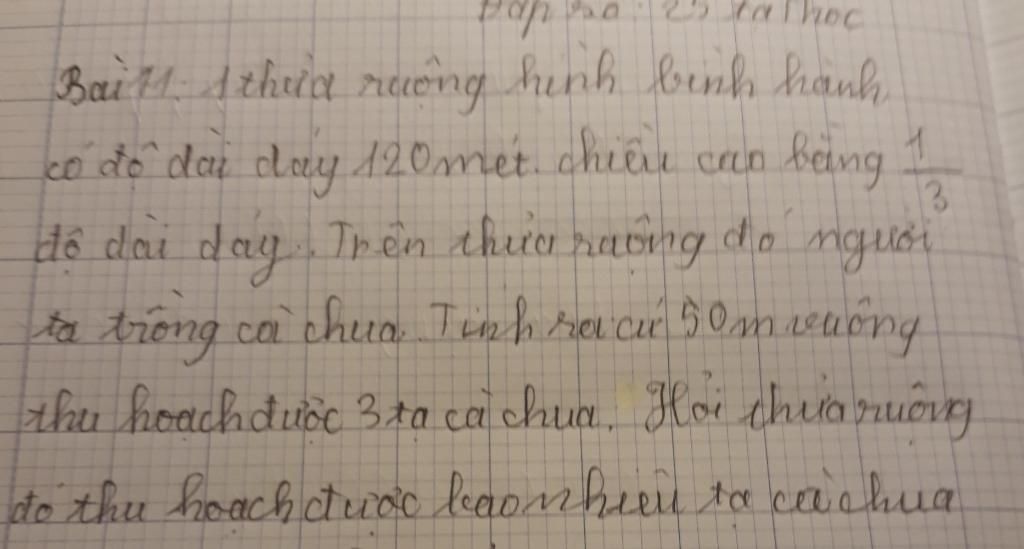 Đáp số: 25 tạ thóc
Bài 11. 1 thửa ruộng hình bình hành
có độ dài đáy 120 mét. chiều cao bằng 1/3
độ dài đáy. Trên thửa ruộng đó người
ta trồng cà chua. Tính ra cứ 50 m vuông
thu hoạch được 3 tạ cà chua. Hỏi thửa ruộng
đó thu hoạch được bao nhiêu tạ cà chua